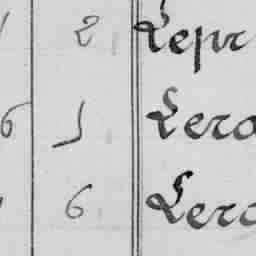 2 Lepr
6 1 Lero
6 Lero